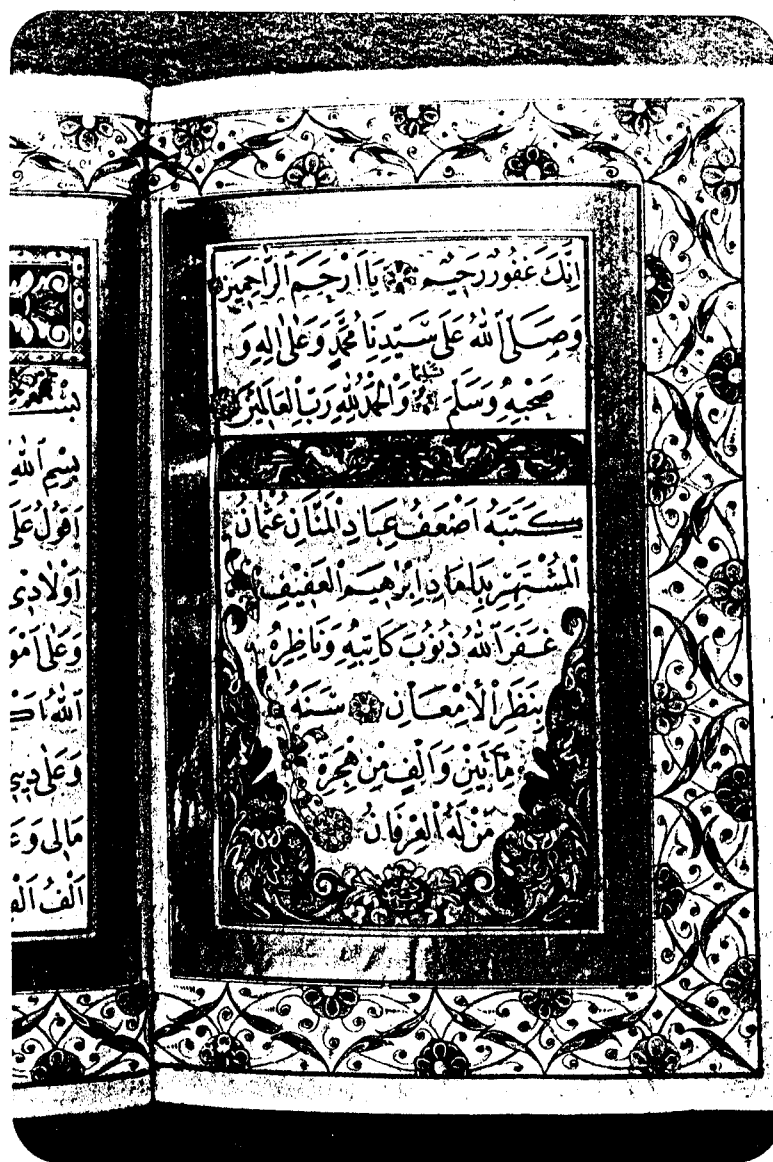 اِنَّكَ غَفُورٌ رَحِيْمٌ يَا اَرْحَمَ الرَّاحِمِيْنَ
وَصَلَّى اللّٰهُ عَلٰى سَيِّدِنَا مُحَمَّدٍ وَعَلٰى اٰلِهٖ وَ
صَحْبِهٖ وَسَلَّمَ تَسْلِيْمًا وَالْحَمْدُ لِلّٰهِ رَبِّ الْعَالَمِيْنَ
كَتَبَهُ اَضْعَفُ عِبَادِ الْمَنَّانِ عُثْمَانُ
الْمُشْتَهِرُ بِدَامَادِ اِبْرٰهِيْمَ الْعَفِيْفِ
غَفَرَ اللّٰهُ ذُنُوْبَ كَاتِبِهٖ وَنَاظِرِهٖ
بِنَظَرِ الْاِمْعَانِ سَنَةَ
مِائَتَيْنِ وَاَلْفٍ مِنْ هِجْرَةِ
مَنْ لَهُ الْعِرْفَانُ
بِسْمِ اللّٰهِ
اَقُوْلُ عَلٰى
اَوْلَادِى
وَعَلٰى
اَللّٰهُ
وَعَلٰى
مَالِى وَ
اَلْفُ